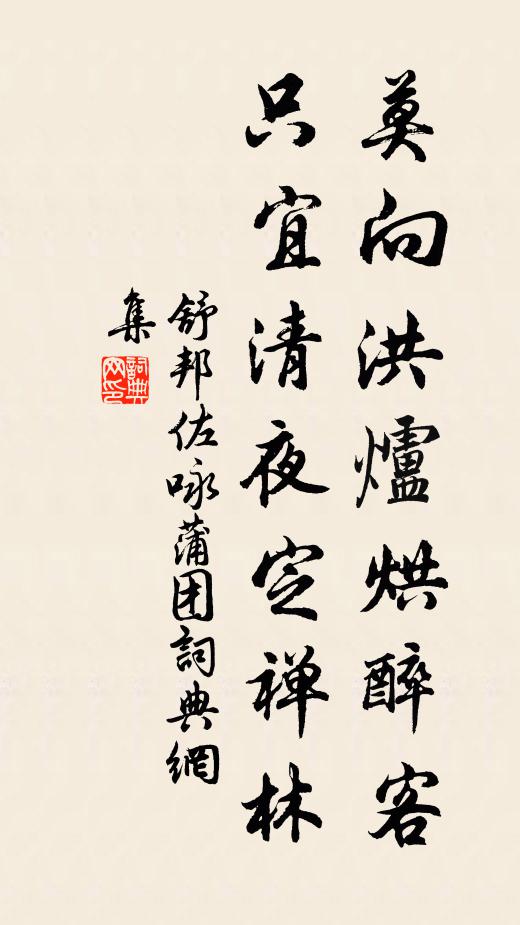 莫向洪爐烘醉客
只宜清夜定禅林
舒邦佐咏蒲团詞典網
集
詞典
网印